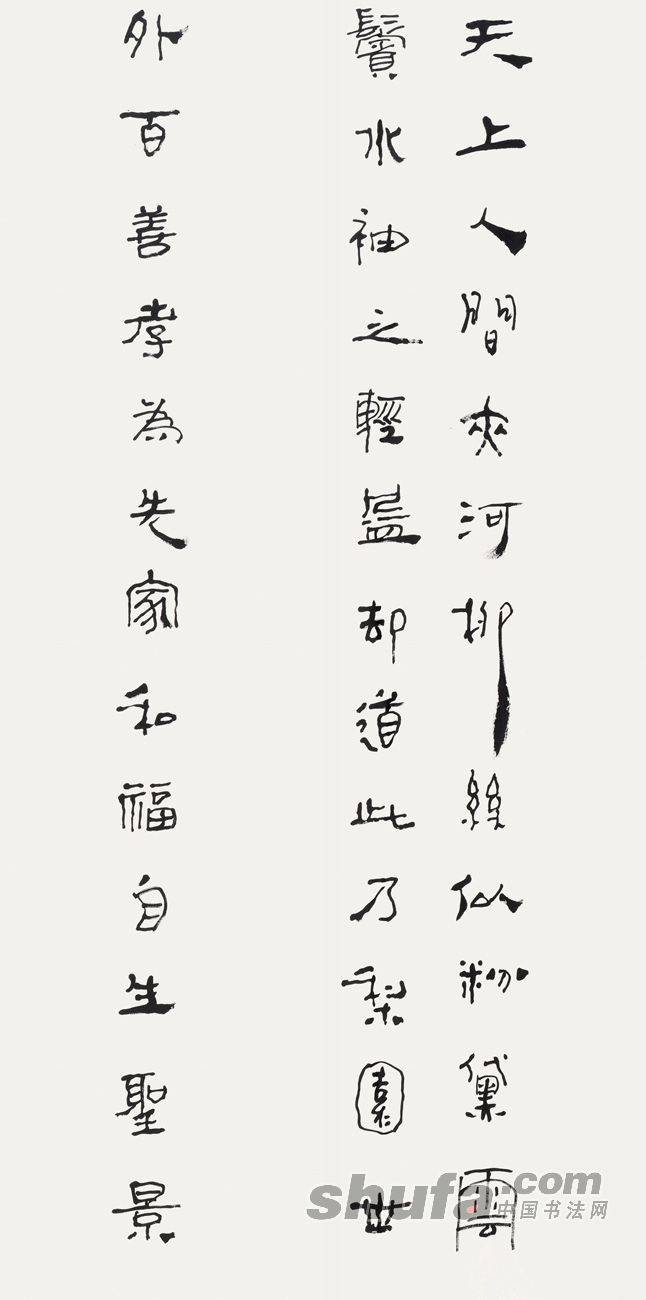 天上人間夾河柳絲似粉黛雲
鬢水袖之輕盈却道此乃梨園世
外百善孝為先家和福自生聖景
shufa.com
中国书法网